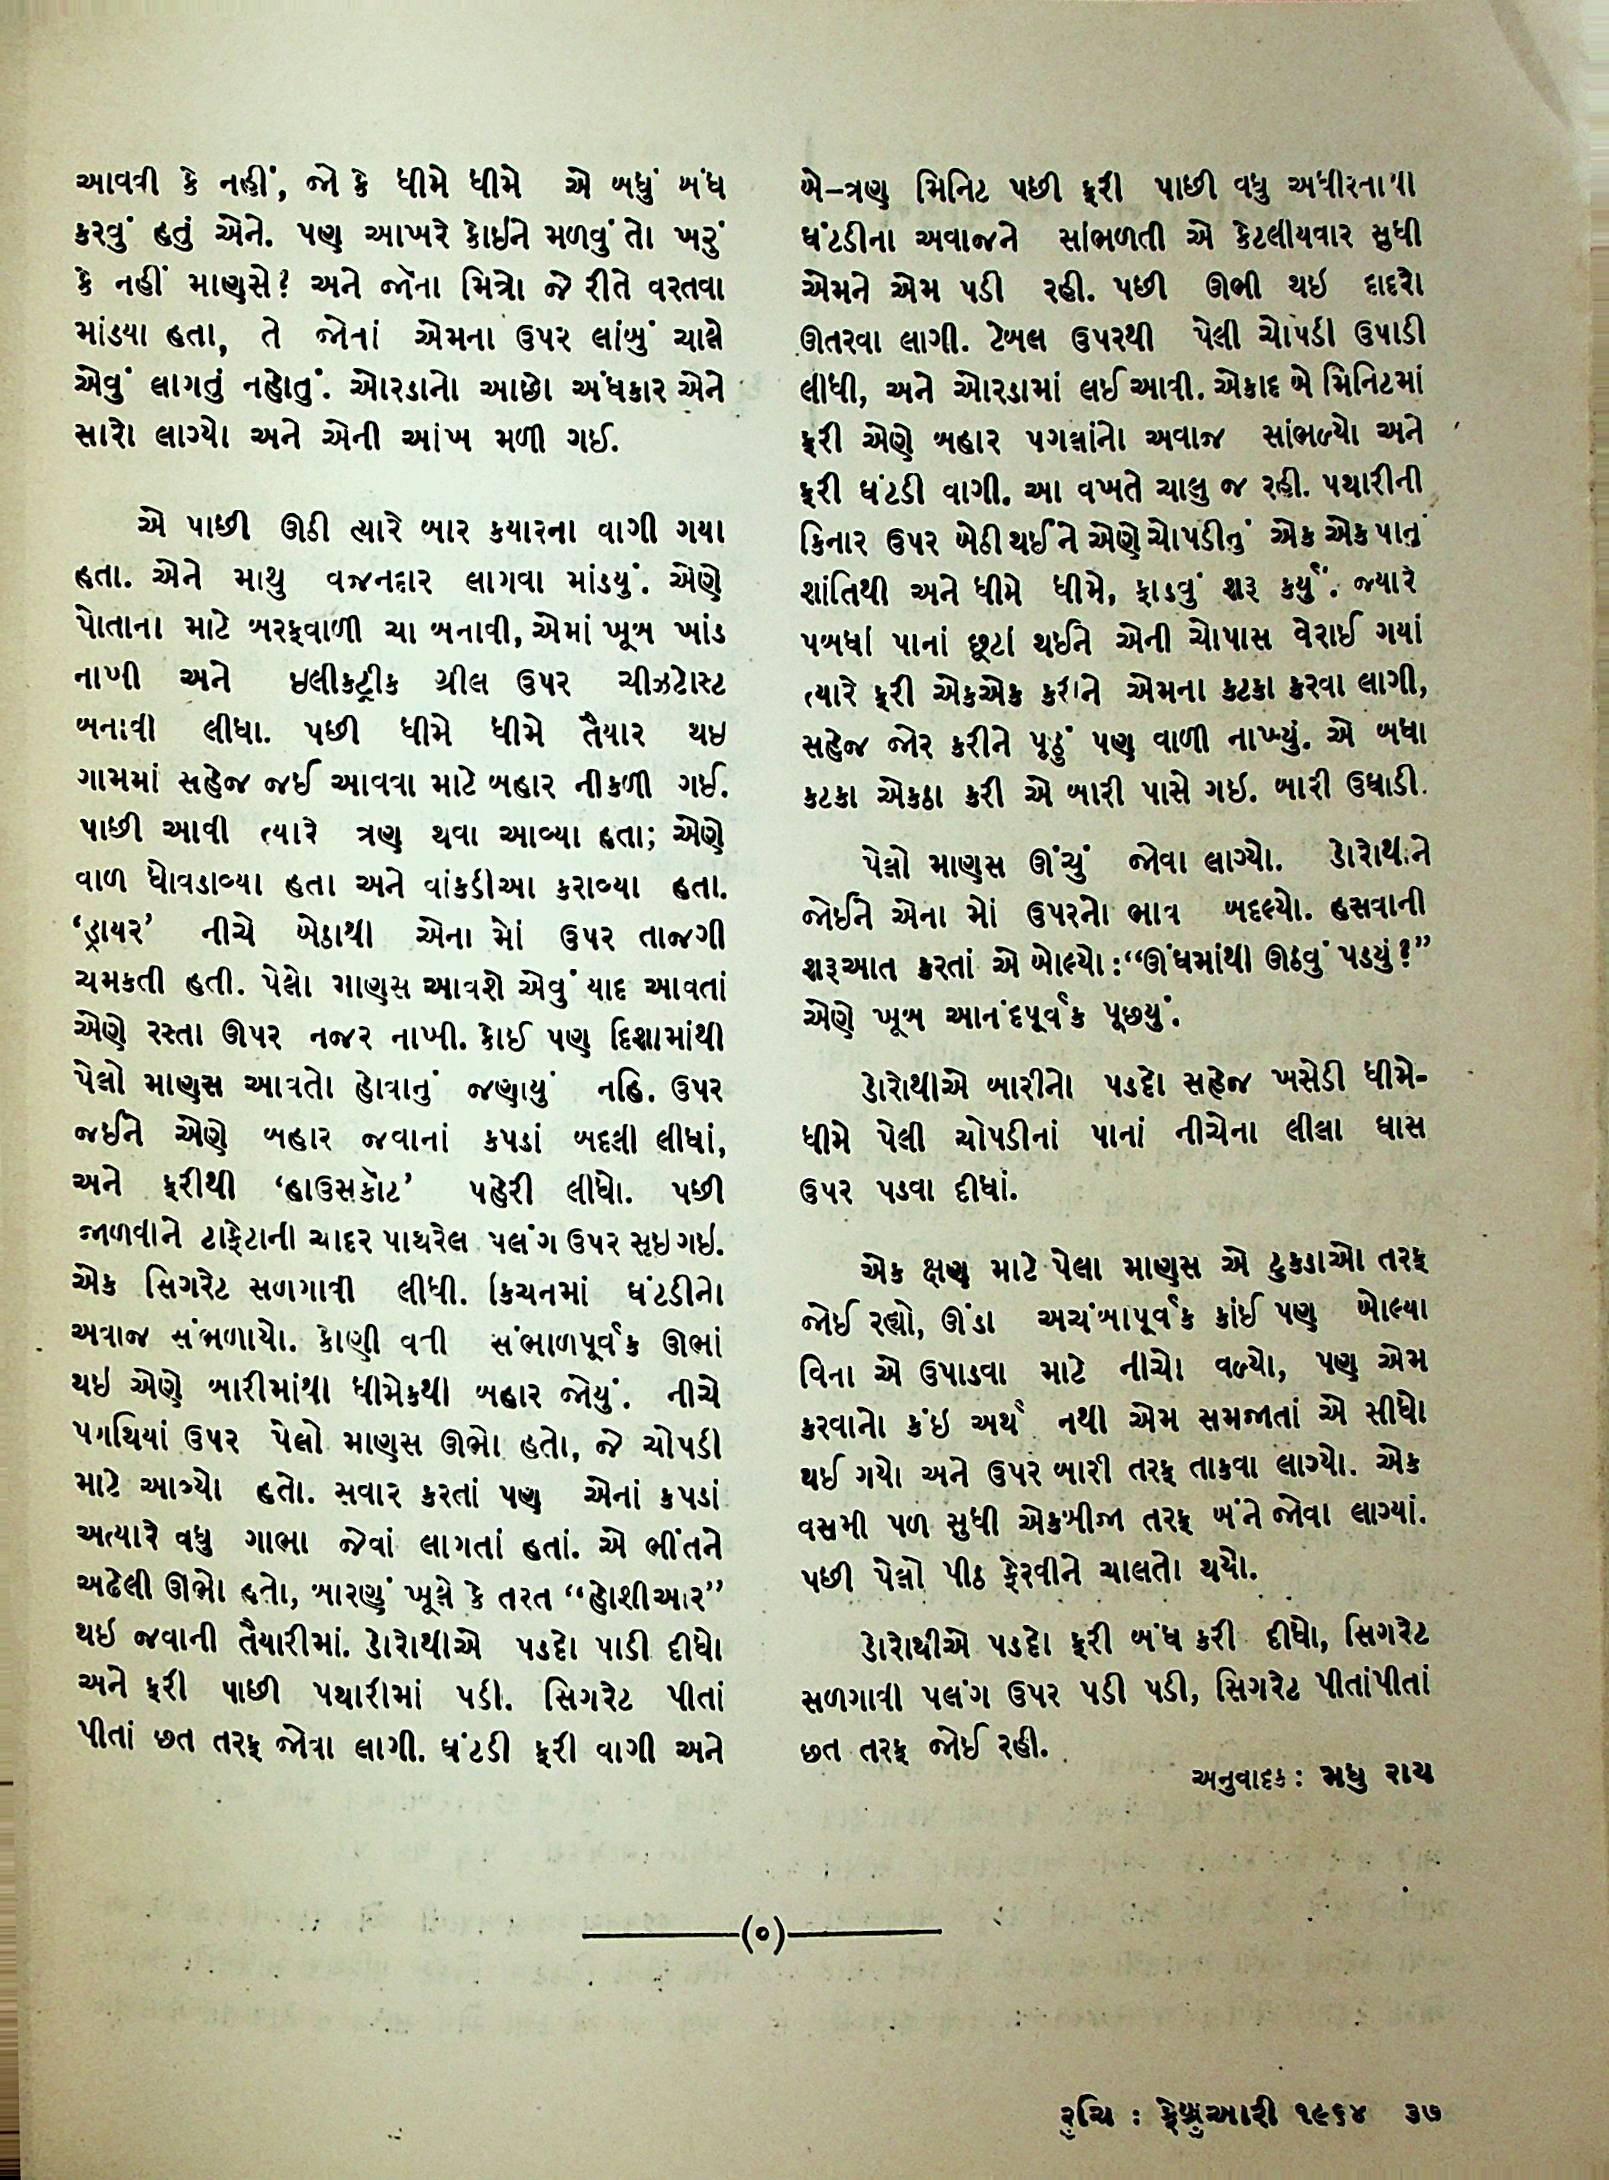 આવતી કે નહીં, જો કે ધીમે ધીમે એ બધું બંધ
કરવું હતું એને. પણ આખરે કોઇને મળવું તો ખરું
કે નહીં માણસે? અને જૉના મિત્રો જે રીતે વરતવા
માંડયા હતા, તે જોતાં એમના ઉપર લાંબું ચાલે
એવું લાગતું નહોતું. ઓરડાનો આછો અંધકાર એને
સારો લાગ્યો અને એની આંખ મળી ગઈ.
એ પાછી ઊઠી ત્યારે બાર કયારના વાગી ગયા
હતા. એને માથુ વજનદાર લાગવા માંડયું. એણે
પોતાના માટે બરફવાળી ચા બનાવી, એમાં ખૂબ ખાંડ
નાખી અને ઇલીકટ્રીક ગ્રીલ ઉપર ચીઝટોસ્ટ
બનાવી લીધા. પછી ધીમે ધીમે તૈયાર થઇ
ગામમાં સહેજ જઈ આવવા માટે બહાર નીકળી ગઈ.
પાછી આવી ત્યારે ત્રણ થવા આવ્યા હતા; એણે
વાળ ધોવડાવ્યા હતા અને વાંકડીઆ કરાવ્યા હતા.
‘ડ્રાયર’ નીચે બેઠાથી એના મોં ઉપર તાજગી
ચમકતી હતી. પેલો માણસ આવશે એવું યાદ આવતાં
એણે રસ્તા ઊપર નજર નાખી. કોઈ પણ દિશામાંથી
પેલો માણસ આવતો હોવાનું જણાયું નહિ. ઉપર
જઈને એણે બહાર જવાનાં કપડાં બદલી લીધાં,
અને ફરીથી ‘હાઉસકૉટ’ પહેરી લીધો. પછી
જાળવીને ટાફેટાની ચાદર પાથરેલ પલંગ ઉપર સૂઇ ગઇ.
એક સિગરેટ સળગાવી લીધી. કિચનમાં ઘંટડીનો
અવાજ સંભળાયો. કોણી વતી સંભાળપૂર્વક ઊભાં
થઇ એણે બારીમાંથી ધીમેકથી બહાર જોયું. નીચે
પગથિયાં ઉપર પેલો માણસ ઊભો હતો, જે ચોપડી
માટે આવ્યો હતો. સવાર કરતાં પણ એનાં કપડાં
અત્યારે વધુ ગાભા જેવાં લાગતાં હતાં. એ ભીંતને
અઢેલી ઊભો હતો, બારણું ખૂલે કે તરત “હોશીઆર”
થઇ જવાની તૈયારીમાં. ડોરોથીએ પડદો પાડી દીધો
અને ફરી પાછી પથારીમાં પડી. સિગરેટ પીતાં
પીતાં છત તરફ જોવા લાગી. ઘંટડી ફરી વાગી અને
બે-ત્રણ મિનિટ પછી ફરી પાછી વધુ અધીરતાથી
ઘંટડીના અવાજને સાંભળતી એ કેટલીયવાર સુધી
એમને એમ પડી રહી. પછી ઊભી થઇ દાદરો
ઊતરવા લાગી. ટેબલ ઉપરથી પેલી ચોપડી ઉપાડી
લીધી, અને ઓરડામાં લઈ આવી. એકાદ બે મિનિટમાં
ફરી એણે બહાર પગલાંનો અવાજ સાંભળ્યો અને
ફરી ઘંટડી વાગી. આ વખતે ચાલુ જ રહી. પથારીની
કિનાર ઉપર બેઠી થઈને એણે ચોપડીનું એક એક પાનું
શાંતિથી અને ધીમે ધીમે, ફાડવું શરૂ કર્યું. જ્યારે
પબધાં પાનાં છૂટાં થઈને એની ચોપાસ વેરાઈ ગયાં
ત્યારે ફરી એકએક કરીને એમના કટકા કરવા લાગી,
સહેજ જોર કરીને પૂઠું પણ વાળી નાખ્યું. એ બધા
કટકા એકઠા કરી એ બારી પાસે ગઇ. બારી ઉઘાડી.
પેલો માણસ ઊંચું જોવા લાગ્યો. ડોરોથીને
જોઈને એના મોં ઉપરનો ભાવ બદલ્યો. હસવાની
શરૂઆત કરતાં એ બોલ્યો:“ઊંઘમાંથી ઊઠવું પડયું?”
એણે ખૂબ આનંદપૂર્વક પૂછયું.
ડોરોથીએ બારીનો પડદો સહેજ ખસેડી ધીમે-
ધીમે પેલી ચોપડીનાં પાનાં નીચેના લીલા ઘાસ
ઉપર પડવા દીધાં.
એક ક્ષણ માટે પેલા માણસ એ ટુકડાઓ તરફ
જોઈ રહ્યો, ઊંડા અચંબાપૂર્વક કાંઈ પણ બોલ્યા
વિના એ ઉપાડવા માટે નીચો વળ્યો, પણ એમ
કરવાનો કંઇ અર્થ નથી એમ સમજાતાં એ સીધો
થઈ ગયો અને ઉપર બારી તરફ તાકવા લાગ્યો. એક
વસમી પળ સુધી એકબીજા તરફ બંને જોવા લાગ્યાં.
પછી પેલો પીઠ ફેરવીને ચાલતો થયો.
ડોરોથીએ પડદો ફરી બંધ કરી દીધો, સિગરેટ
સળગાવી પલંગ ઉપર પડી પડી, સિગરેટ પીતાંપીતાં
છત તરફ જોઈ રહી.
અનુવાદક: મધુ રાય
રુચિ : ફેબ્રુઆરી ૧૯૬૪ ૩૭